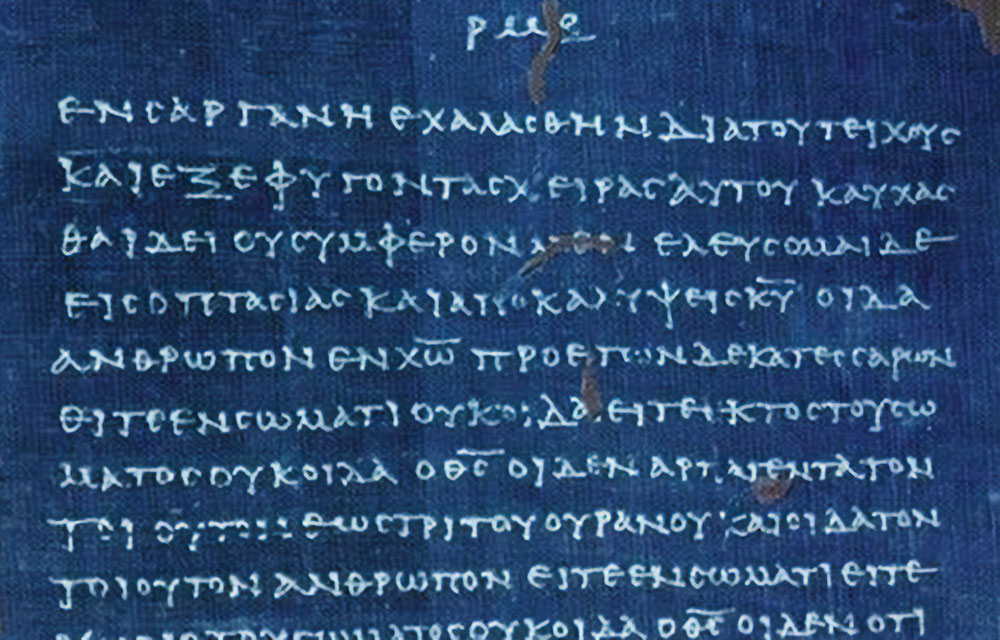 ρμε
ΕΝ ϹΑΡΓΑΝΗ ΕΧΑΛΑϹΘΗΝ ΔΙΑ ΤΟΥ ΤΕΙΧΟΥϹ
ΚΑΙ ΕΞΕΦΥΓΟΝ ΤΑϹ ΧΕΙΡΑϹ ΑΥΤΟΥ ΚΑΥΧΑϹ
ΘΑΙ ΔΕΙ ΟΥ ϹΥΜΦΕΡΟΝ ΕΛΕΥϹΟΜΑΙ ΔΕ
ΕΙϹ ΟΠΤΑϹΙΑϹ ΚΑΙ ΑΠΟΚΑΛΥΨΕΙϹ Κ̅Υ̅ ΟΙΔΑ
ΑΝΘΡΩΠΟΝ ΕΝ Χ̅Ω̅ ΠΡΟ ΕΤΩΝ ΔΕΚΑΤΕϹϹΑΡΩΝ
ΕΙΤΕ ΕΝ ϹΩΜΑΤΙ ΟΥΚ ΟΙΔΑ ΕΙΤΕ ΕΚΤΟϹ ΤΟΥ ϹΩ
ΜΑΤΟϹ ΟΥΚ ΟΙΔΑ Ο Θ̅Ϲ̅ ΟΙΔΕΝ ΑΡΠΑΓΕΝΤΑ ΤΟΝ
ΕΩϹ ΤΡΙΤΟΥ ΟΥΡΑΝΟΥ ΚΑΙ ΟΙΔΑ ΤΟΝ
ΤΟΙΟΥΤΟΝ ΑΝΘΡΩΠΟΝ ΕΙΤΕ ΕΝ ϹΩΜΑΤΙ ΕΙΤΕ
ΟΥΚ ΟΙΔΑ Ο Θ̅Ϲ̅ ΟΙΔΕΝ ΟΤΙ